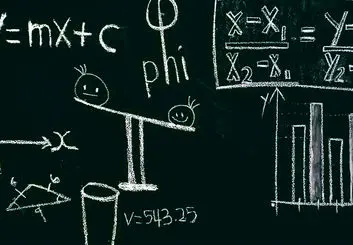 Y=mx+c
φ
phi
x-x₁ = y-
x₂-x₁ y₂-
y
x
6 6
9
V=543.25